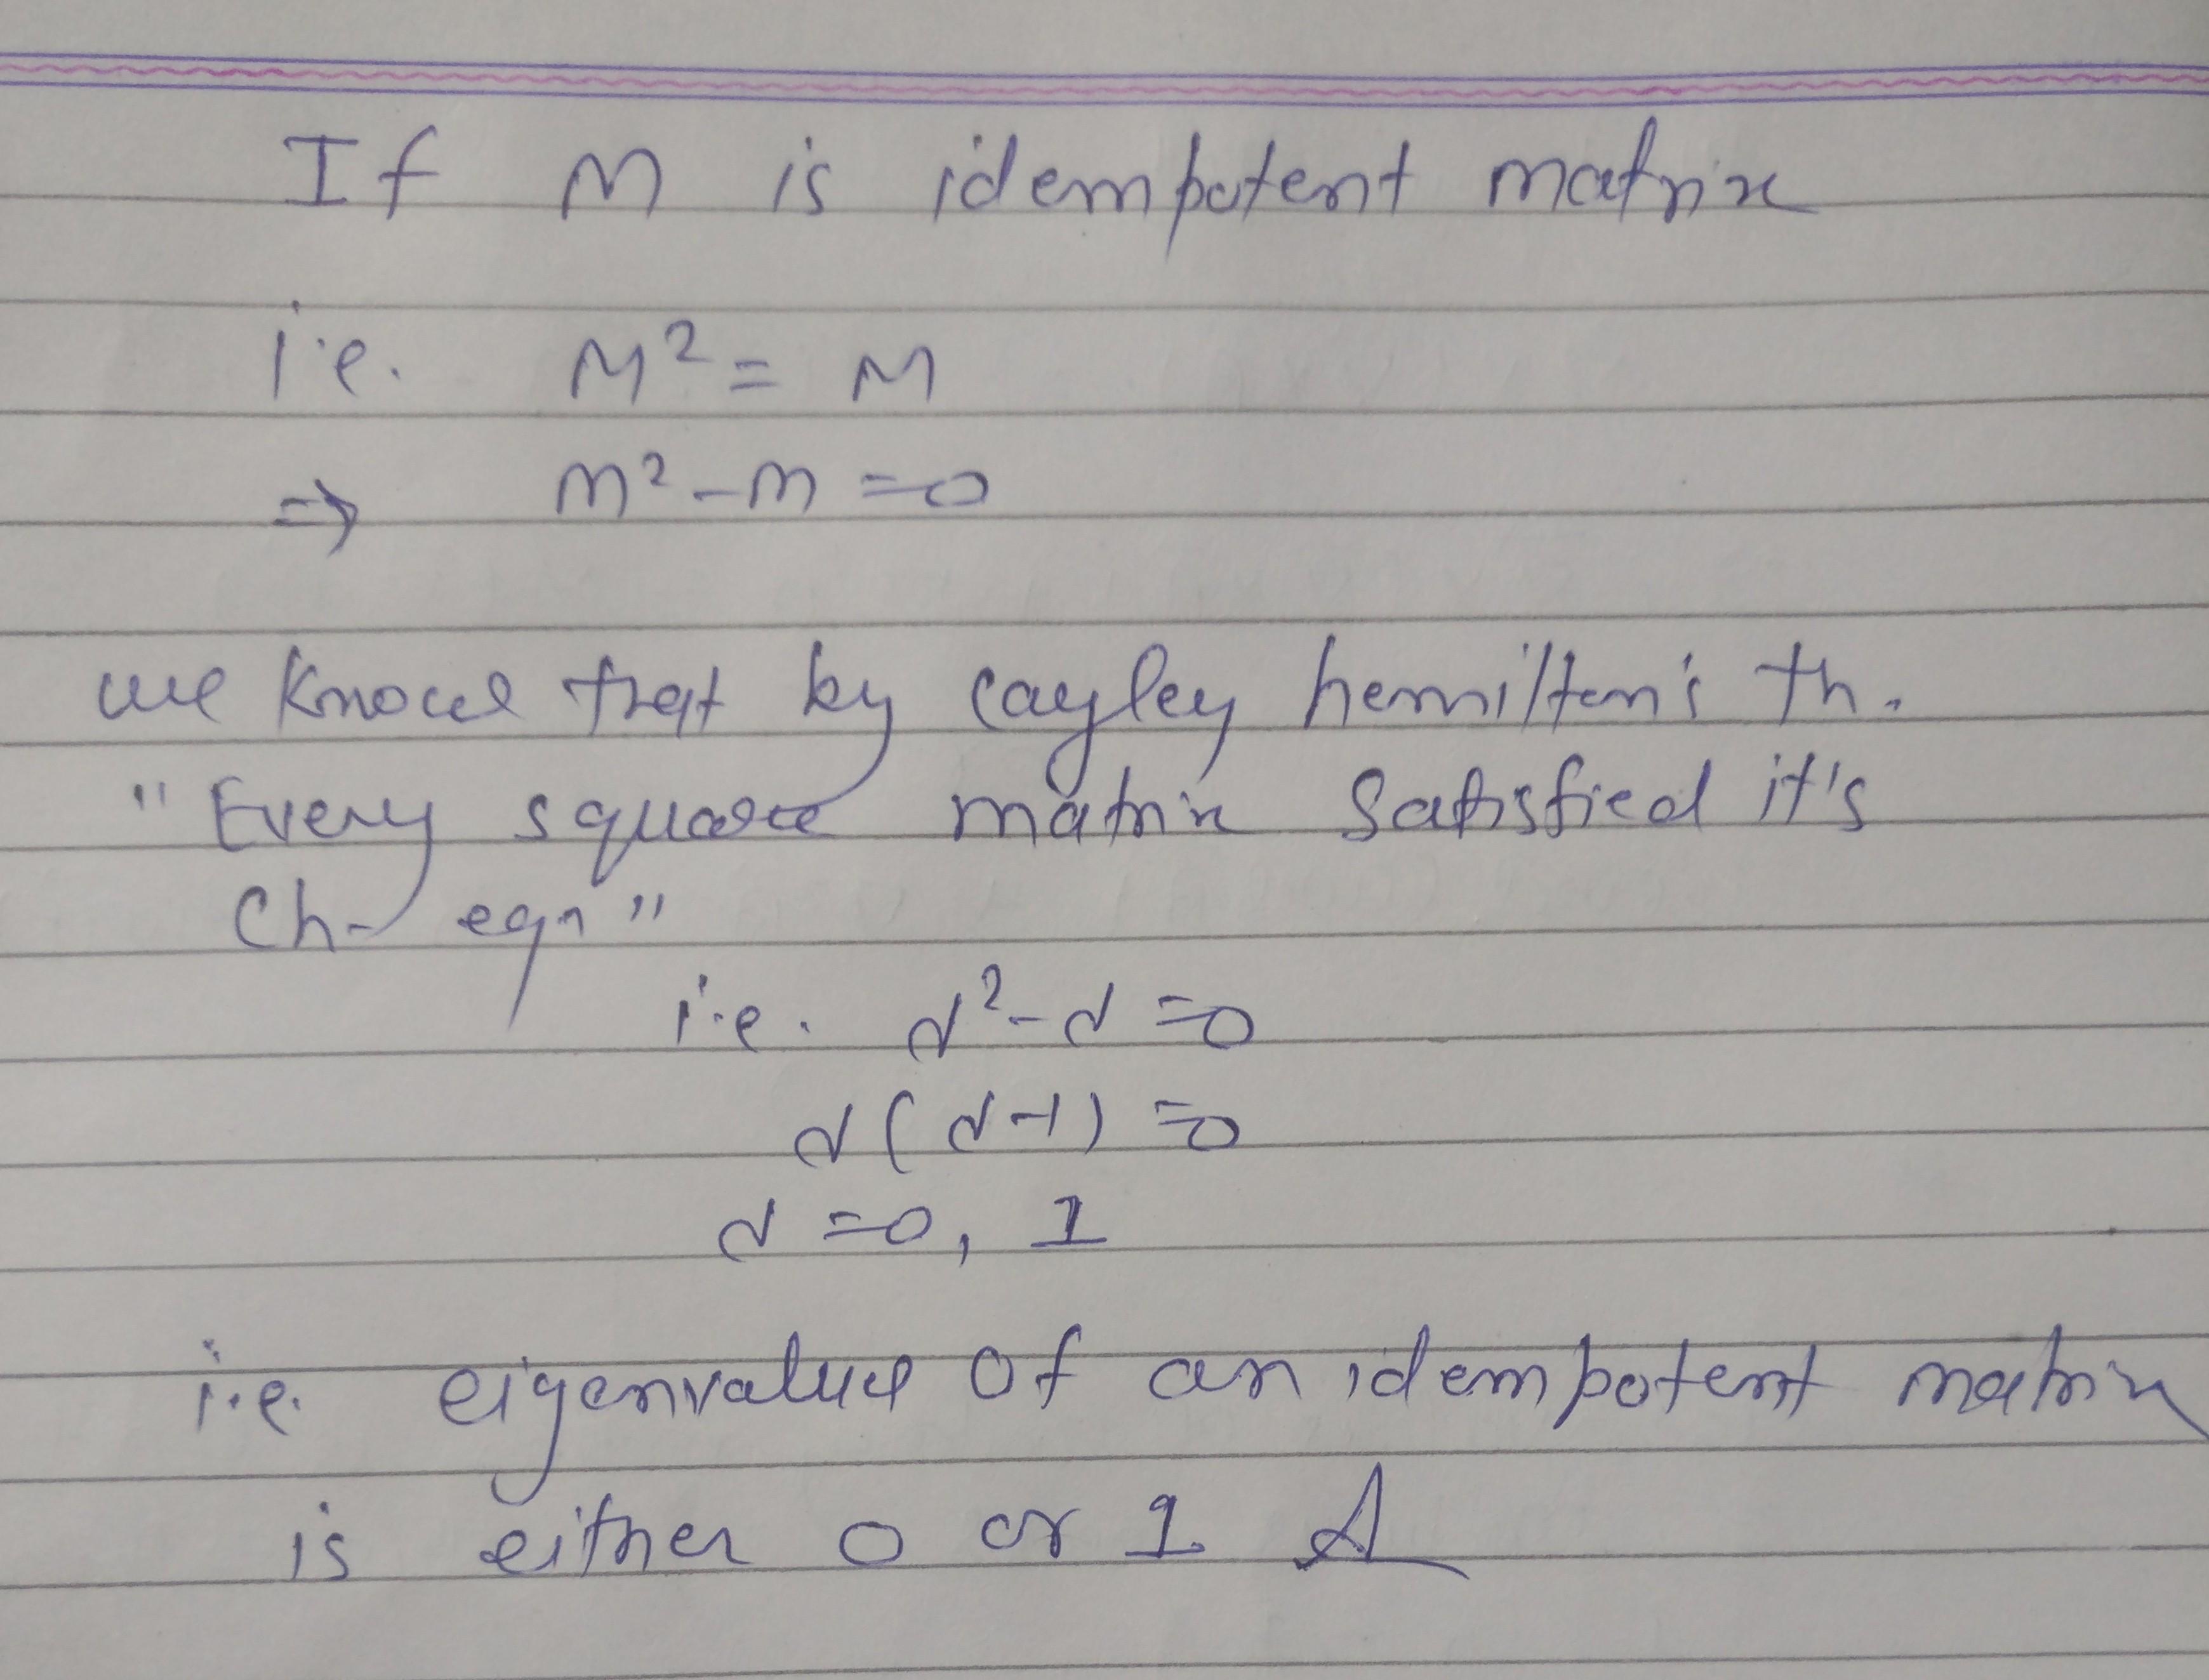 If M is idempotent matrix
i.e. M² = M
⇒ M² - M = 0
we know that by Cayley hemilton's th.
"Every square matrix satisfied it's
Ch- eqn"
i.e. λ² - λ = 0
λ(λ-1) = 0
λ = 0, 1
i.e. eigenvalue of an idempotent matrix
is either 0 or 1